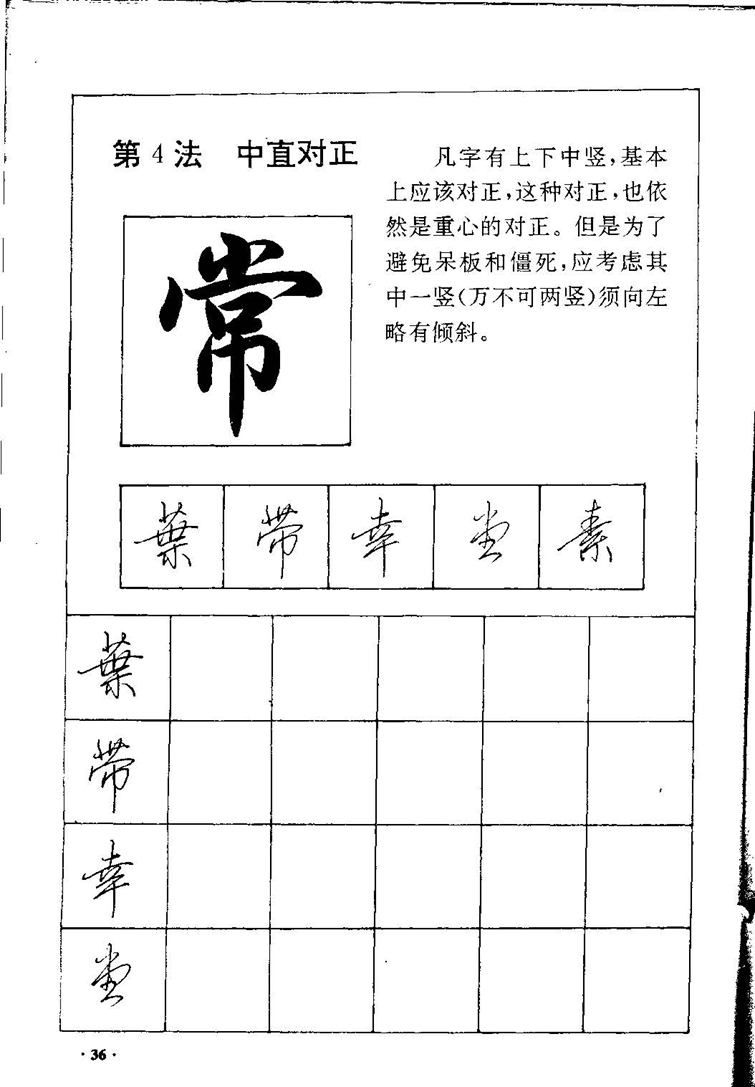 第4法 中直对正
凡字有上下中竖,基本
上应该对正,这种对正,也依
然是重心的对正。但是为了
避免呆板和僵死,应考虑其
中一竖(万不可两竖)须向左
略有倾斜。
常
葉 带 幸 堂 素
葉
带
幸
堂
·36·